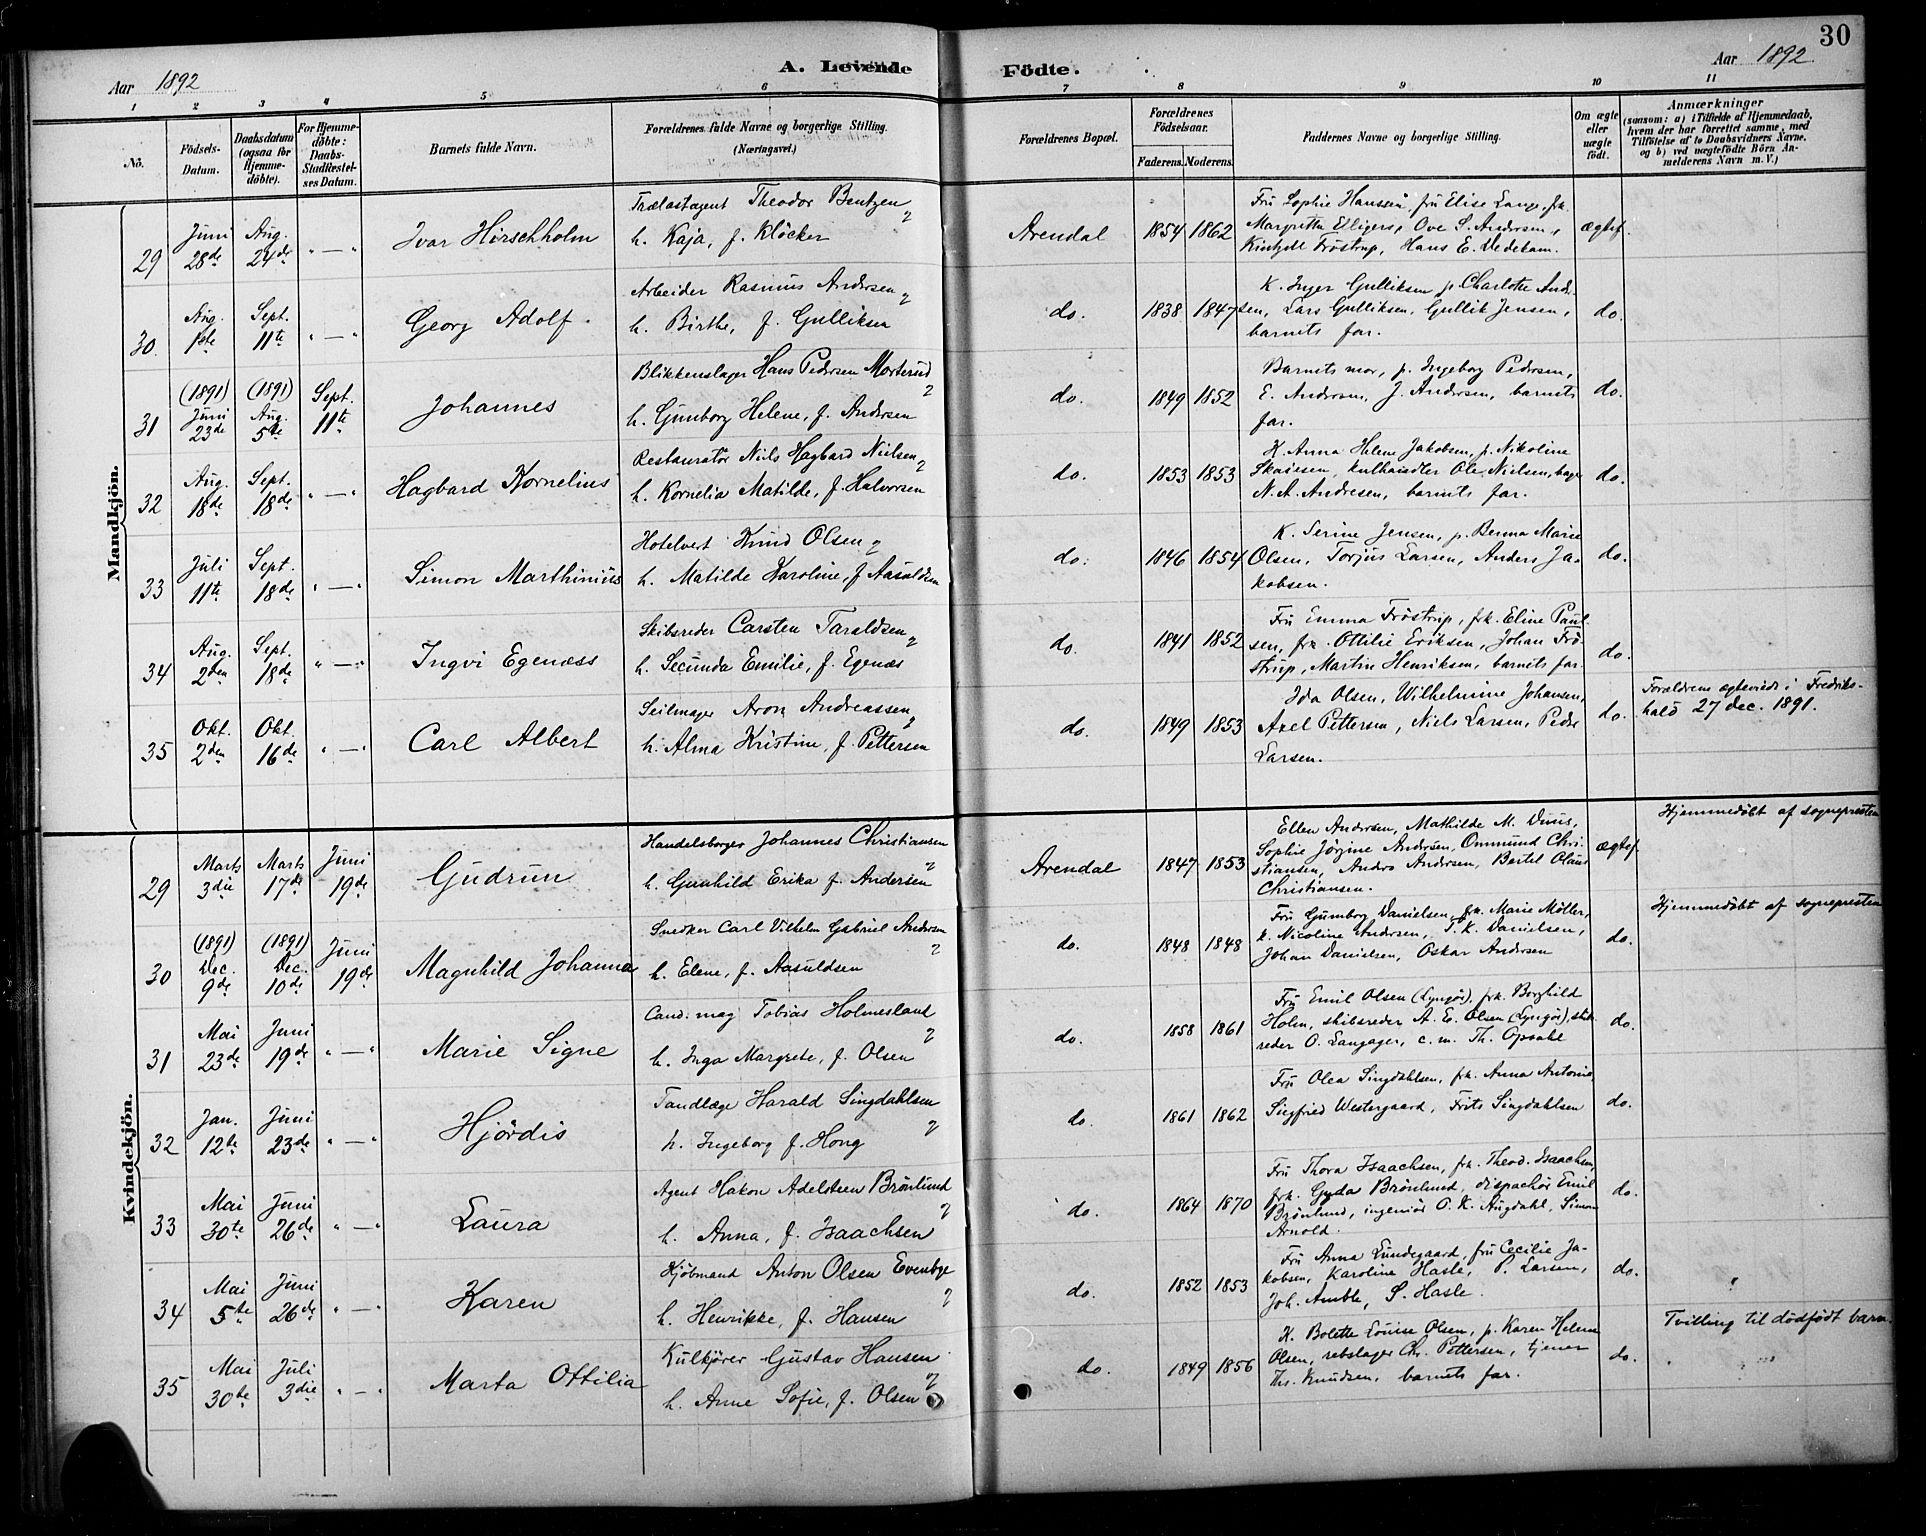 30
Aar 1892
A. Levende Födte.
Aar 1892.
1 2 3 4 5 6 7 8 9 10 11
No.
Födsels-Datum.
Daabsdatum (ogsaa för Hjemmedöbte).
For Hjemmedöbte: Daabs-Stadfæstelses Datum.
Barnets fulde Navn.
Forældrenes fulde Navne og borgerlige Stilling. (Næringsvei.)
Forældrenes Bopæl.
Forældrenes Födselsaar.
Faderens. Moderens.
Faddernes Navne og borgerlig Stilling.
Om ægte eller uægte födt.
Anmærkninger
(saasom: a) i Tilfælde af Hjemmedaab, hvem der har forrettet samme, med Tilföielse af to Daabsvidners Navne, og b) ved uægtefödte Börn Anmelderens Navn m. V.)
Mandkjön.
29 Juni 28de Aug. 24de " — " Ivar Hirschholm
Trælastagent Theodor Bentzen
h. Kaja, f. Klöcker
Arendal 1854 1862
Fru Sophie Hanssen, fru Elise Lange, frk.
Margrethe Elligers, Ove S. Andersen,
Fröstrup, Hans E. Dedekam.
ægtef.
30. Aug. 1ste Sept. 11te " — " Georg Adolf.
Arbeider Rasmus Andersen
h. Birthe, f. Gulliksen
do. 1838 1847
K. Inger Gulliksen, p. Charlotte Ander-
sen, Lars Gulliksen, Gullik Jensen,
barnets far.
do.
31 (1891) Juni 23de (1891) Aug. 5te Sept. 11te Johannes
Blikkenslager Hans Pedersen Mosterud
h. Gunborg Helene, f. Andersen
do. 1849 1852
Barnets mor, p. Ingeborg Pedersen,
E. Andersen, J. Andersen, barnets
far.
do.
32 Aug. 18de Sept. 18de " — " Hagbard Kornelius
Restauratør Niels Hagbard Nielsen
h. Kornelia Matilde, f. Halvorsen
do. 1853 1853
K. Anna Helene Jakobsen, p. Nikoline
Ole Nielsen,
N. A. Andresen, barnets far.
do.
33 Juli 11te Sept. 18de " — " Simon Marthinius
Hotelvert Knud Olsen
h. Matilde Karoline, f. Aasuldsen
do. 1846 1854
K. Serine Jensen, p. Benna Marie
Olsen, Torjus Larsen, Anders Ja-
kobsen.
do.
34 Aug. 2den Sept. 18de " — " Ingvi Egenæss
Skibsreder Carsten Taraldsen
h. Secunda Emilie, f. Egenæs
do. 1841 1852
Fru Emma Fröstrup, frk. Eline Paul-
sen, frk. Ottilie Eriksen, Johan Frö-
strup, Martin Henriksen, barnets far.
do.
35 Okt. 2den Okt. 16de " — " Carl Albert
Seilmager Aron Andreassen
h. Alma Kristine, f. Pettersen
do. 1849 1853
Ida Olsen, Wilhelmine Johansen,
Axel Pettersen, Niels Larsen, Peder
Larsen.
do.
Forældrene ægteviede i Fredriks-
hald 27 dec. 1891.
Kvindekjön.
29 Marts 3die Marts 17de Juni 19de Gudrun
Handelsborger Johannes Christiansen
h. Gunhild Erika f. Andersen
Arendal 1847 1853
Ellen Andersen, Mathilde M. Duus,
Sophie Jörgine Andersen, Ommund Chri-
stiansen, Anders Andersen, Bertel Olaus
Christiansen.
ægtef.
Hjemmedöbt af sognepresten
30 (1891) Dec. 9de (1891) Dec. 10de Juni 19de Magnhild Johanna
Snedker Carl Vilhelm Gabriel Andersen
h. Elene, f. Aasuldsen
do. 1848 1848
Fru Gunborg Danielsen, frk. Marie Möller,
k. Nicoline Andersen, T. K. Danielsen,
Johan Danielsen, Oskar Andersen
do.
Hjemmedöbt af sognepresten
31 Mai 23de Juni 19de " — " Marie Signe
Cand. mag Tobias Holmesland
h. Inga Margrete, f. Olsen
do. 1858 1861
Fru Emil Olsen (Lyngör), frk. Borghild
Holm, skibsreder A. E. Olsen (Lyngör), skibs-
reder O. Langager, c. m. Th. Opsahl
do.
32 Jan. 12te Juni 23de " — " Hjördis
Tandlæge Harald Singdahlsen
h. Ingeborg f. Hong
do. 1861 1862
Fru Olea Singdahlsen, frk. Anna Antonie,
Siegfried Westergaard, Frits Singdahlsen
do.
33 Mai 30te Juni 26de " — " Laura
Agent Hakon Adelsteen Brönlund
h. Anna, f. Isaachsen
do. 1864 1870
Fru Thora Isaachsen, frk. Theod. Isaachsen,
frk. Gyda Brönlund, dispachör Emil
Brönlund, ingeniör O. K. Augdahl, Simon
Arnold.
do.
34 Mai 5te Juni 26de " — " Karen
Kjöbmand Anton Olsen Evenbye
h. Henrikke, f. Hansen
do. 1852 1853
Fru Anna Lundegaard, fru Cecilie Ja-
kobsen, Karoline Hasle, P. Larsen,
Joh. Amble, S. Hasle.
do.
35 Mai 30te Juli 3die " — " Marta Ottilia
Kulkjörer Gustav Hansen
h. Anne Sofie, f. Olsen
do. 1849 1856
K. Bolette Louise Olsen, p. Karen Helene
Olsen, rebslager Chr. Pettersen, tjener
Ths. Knudsen, barnets far.
do.
Tvilling til dödfödt barn.